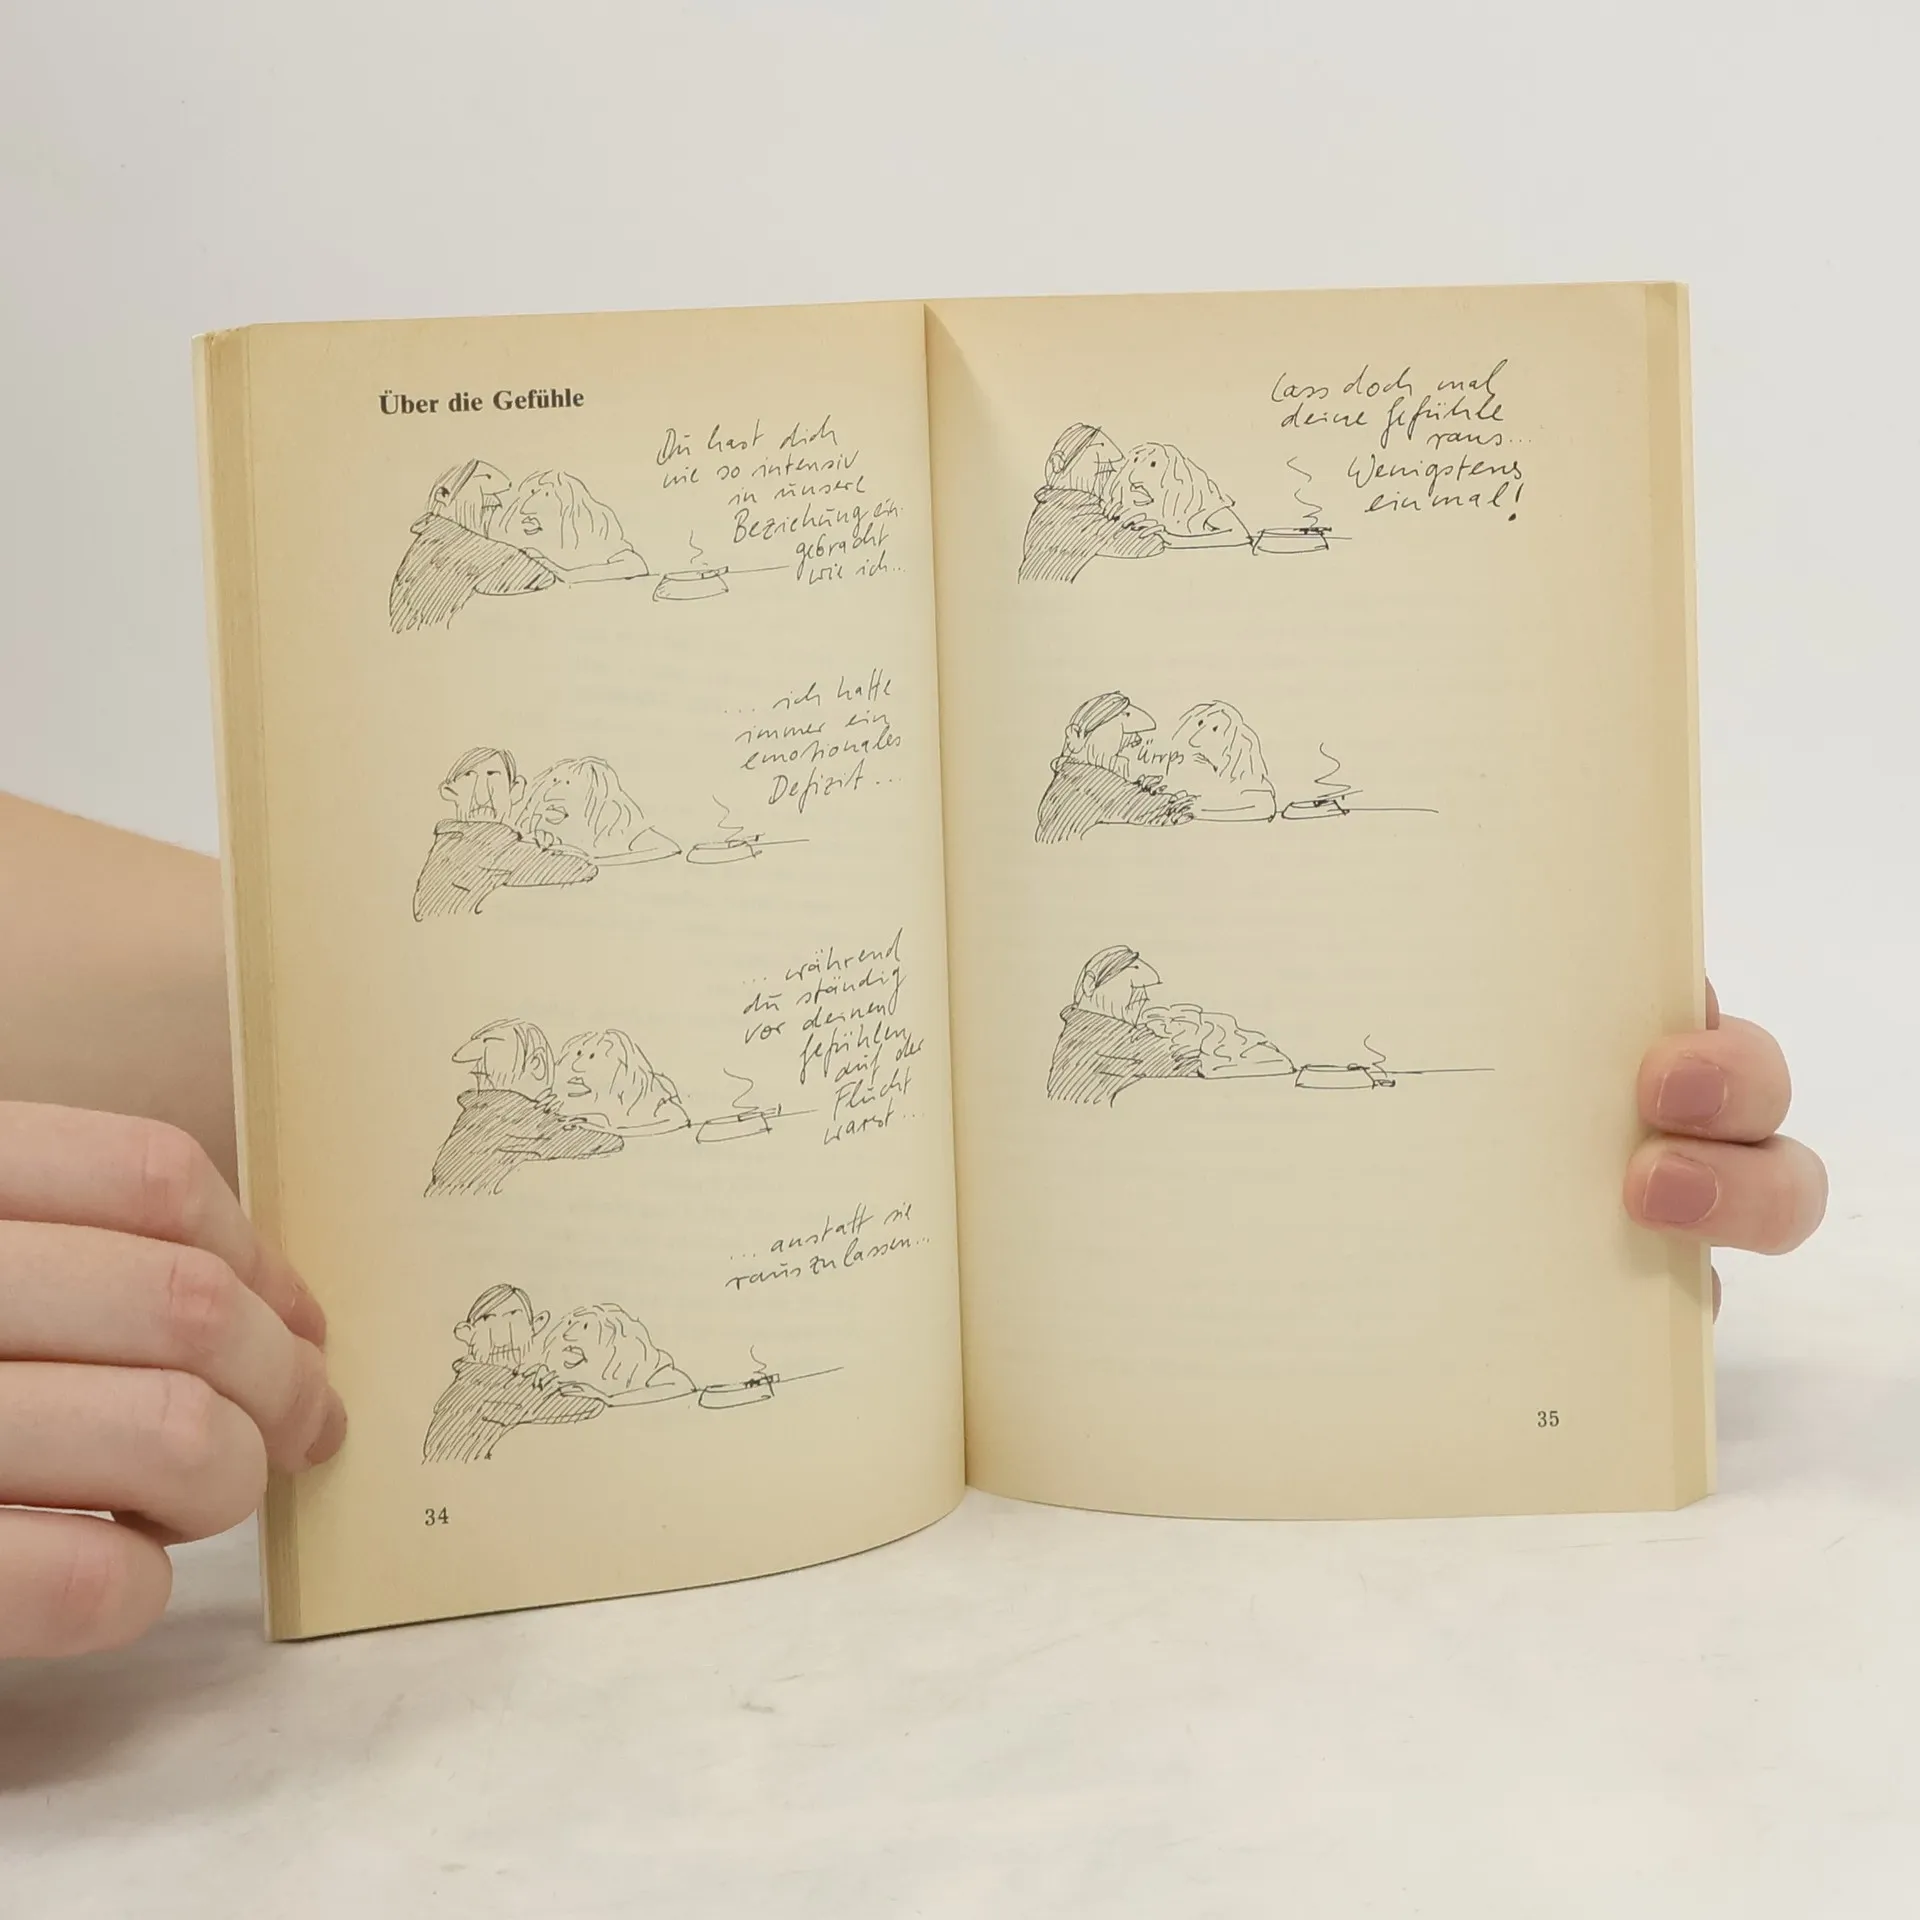 Über die Gefühle
Du hast dich
nie so intensiv
in unsere
Beziehung ein-
gebracht
wie ich...
... ich hatte
immer ein
emotionales
Defizit...
... während
du ständig
vor deinen
Gefühlen
auf der
Flucht
warst...
... anstatt sie
rauszulassen...
34
Lass doch mal
deine Gefühle
raus...
Wenigstens
einmal!
Ürrps
35